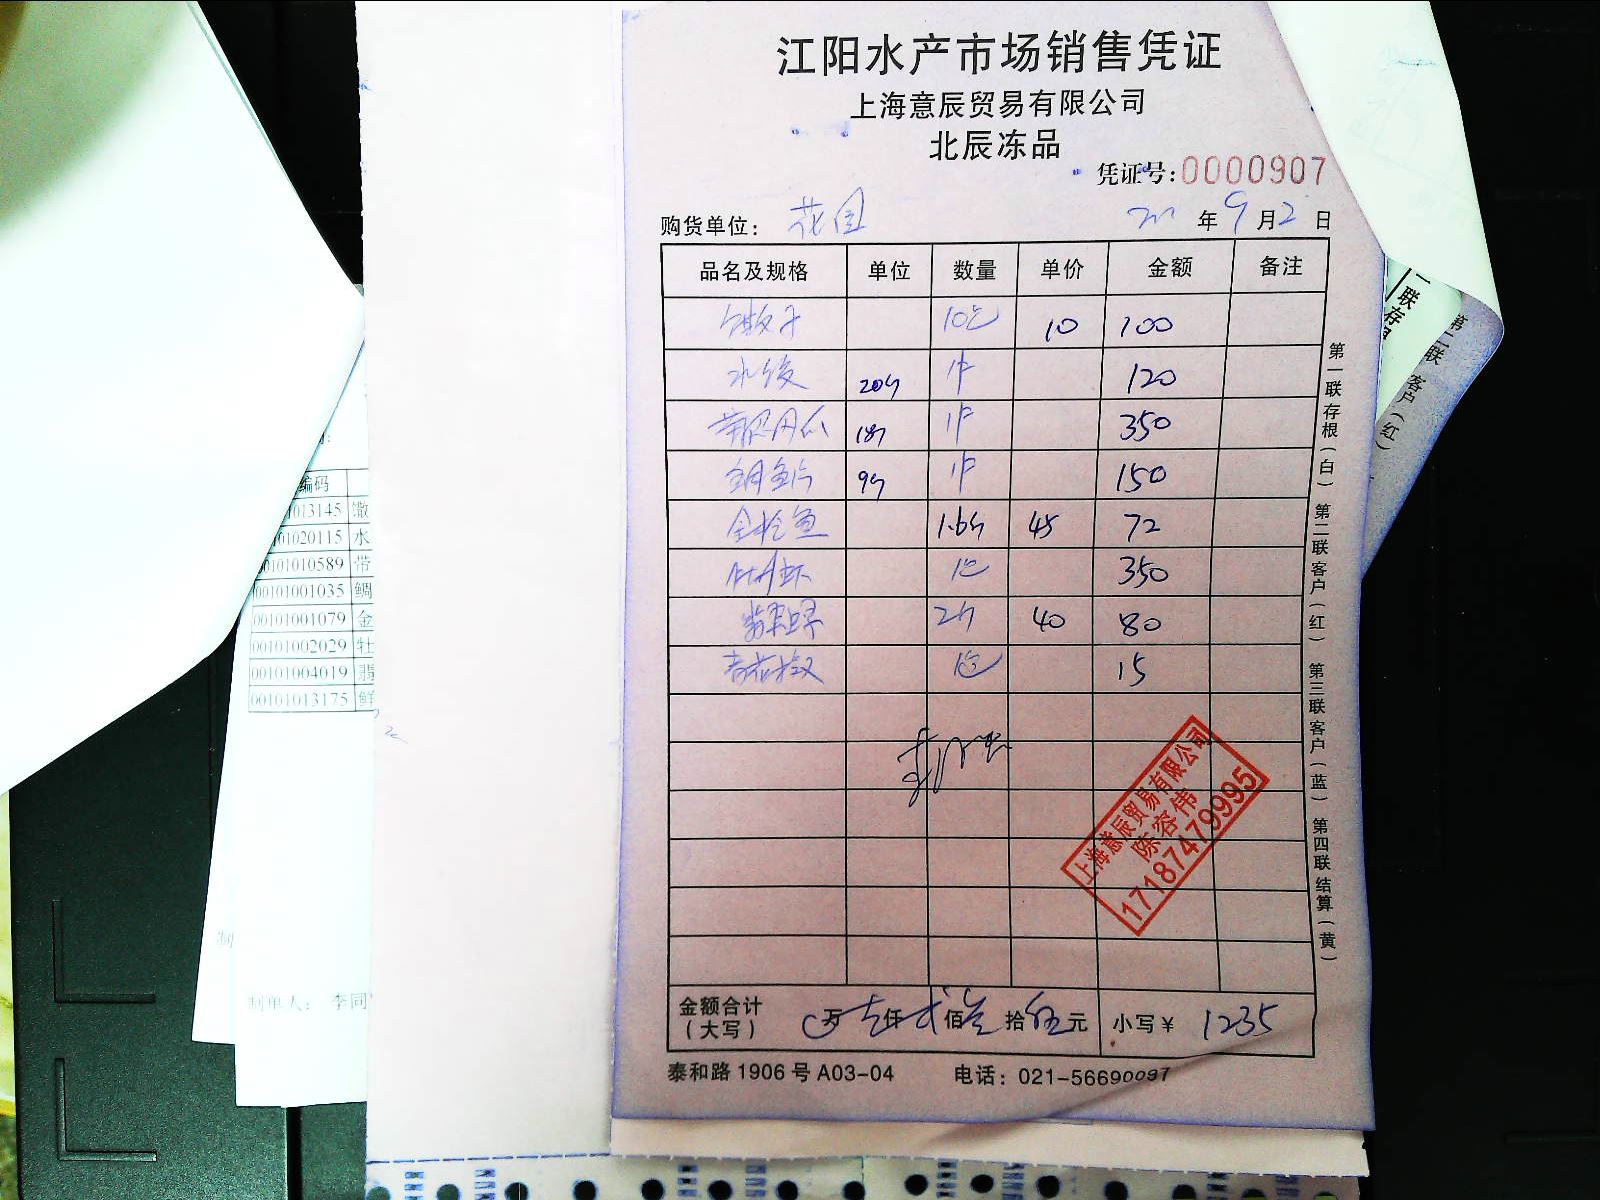 江阳水产市场销售凭证
上海意辰贸易有限公司
北辰冻品
凭证号:0000907
购货单位: 花园 年9月2日
品名及规格 单位 数量 单价 金额 备注
馓子 10包 10 100
水饺 20斤 1件 120
18斤 1件 350
鲷鱼片 9斤 1件 150
金枪鱼 1.6斤 45 72
牡丹虾 1包 350
翡翠螺 2斤 40 80
青花椒 1包 15
上海意辰贸易有限公司
陈容伟
17187479995
金额合计(大写) 万壹仟贰佰叁拾伍元 小写¥ 1235
泰和路1906号A03-04 电话:021-56690097
第一联存根(白) 第二联客户(红) 第三联客户(蓝) 第四联结算(黄)
联存
第二联 客户(红)
编码
01013145 馓
00101020115 水
00101010589 带
00101001035 鲷
00101001079 金
00101002029 牡
00101004019 翡
00101013175 鲜
制单人: 李同